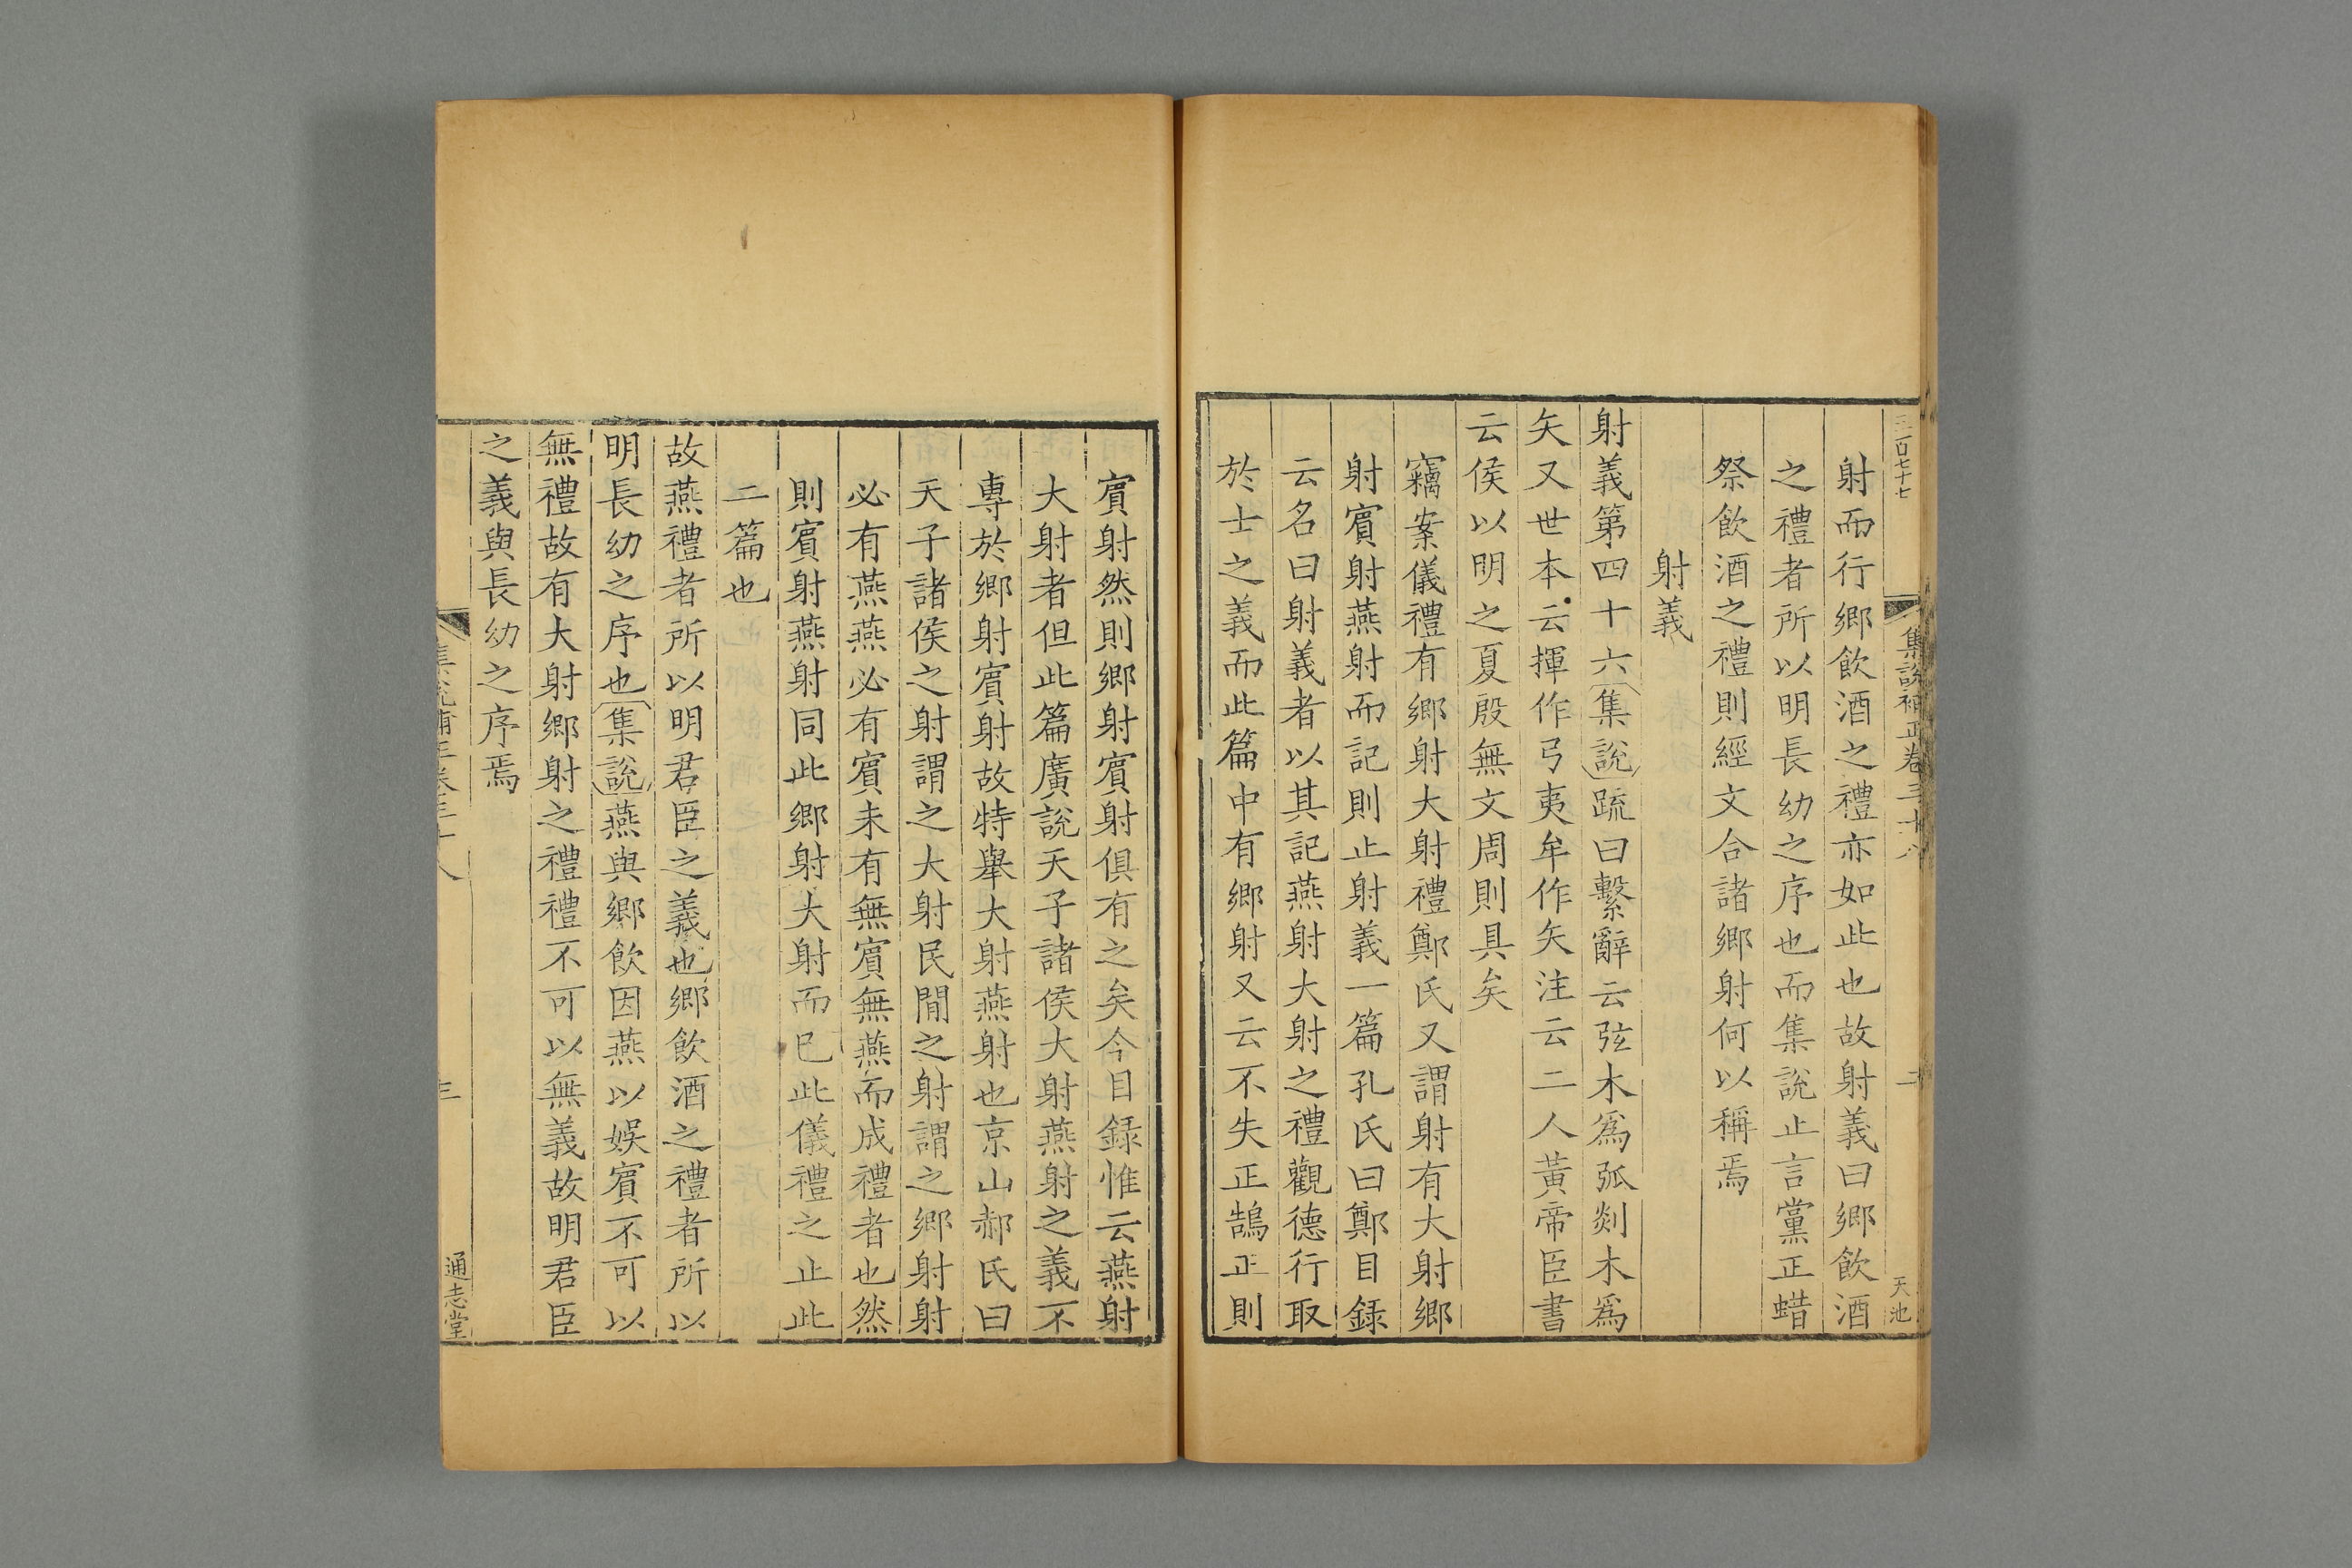 三百七十七
集説補正卷三十八
二
天池
射而行鄉飲酒之禮亦如此也故射義曰鄉飲酒
之禮者所以明長幼之序也而集說止言黨正蜡
祭飲酒之禮則經文合諸鄉射何以稱焉
射義
射義第四十六集說疏曰繫辭云弦木爲弧剡木爲
矢又世本云揮作弓夷牟作矢注云二人黃帝臣書
云侯以明之夏殷無文周則具矣
竊案儀禮有鄉射大射禮鄭氏又謂射有大射鄉
射賓射燕射而記則止射義一篇孔氏曰鄭目錄
云名曰射義者以其記燕射大射之禮觀德行取
於士之義而此篇中有鄉射又云不失正鵠正則
賓射然則鄉射賓射俱有之矣今目錄惟云燕射
大射者但此篇廣說天子諸侯大射燕射之義不
專於鄉射賓射故特舉大射燕射也京山郝氏曰
天子諸侯之射謂之大射民間之射謂之鄉射射
必有燕燕必有賓未有無賓無燕而成禮者也然
則賓射燕射同此鄉射大射而巳此儀禮之止此
二篇也
故燕禮者所以明君臣之義也鄉飲酒之禮者所以
明長幼之序也集說燕與鄉飲因燕以娛賓不可以
無禮故有大射鄉射之禮禮不可以無義故明君臣
之義與長幼之序焉
集説補正卷三十八
三
通志堂